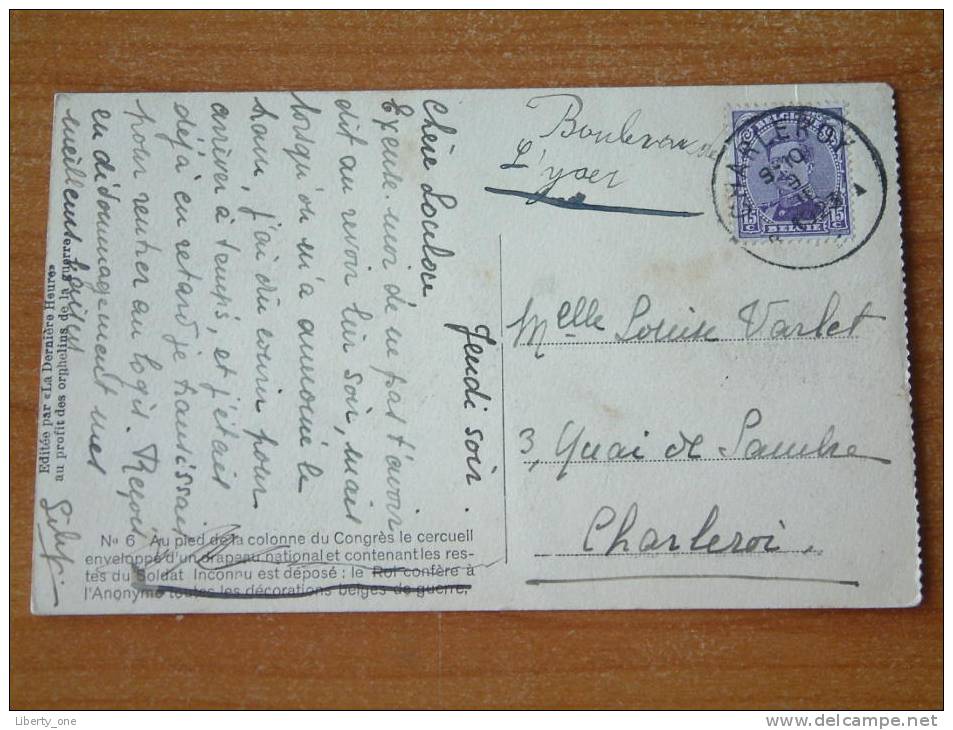 Jeudi soir.
Chère
Excuse-moi de ne pas t'avoir
dit au revoir hier soir, mais
lorsqu'on m'a annoncé le
tram, j'ai dû courir pour
arriver à temps, et j'étais
déjà en retard je
pour rentrer au logis. Reçois
en dédommagement mes
meilleurs
Editée par «La Dernière Heure»
au profit des orphelins de la guerre.
No 6 Au pied de la colonne du Congrès le cercueil
enveloppé d'un drapeau national et contenant les res-
tes du Soldat Inconnu est déposé : le Roi confère à
l'Anonyme toutes les décorations belges de guerre.
CHARLEROY
1
BELGIQUE
15 C
15 C
BELGIE
Melle Louise Varlet
3, Quai de Sambre
Charleroi.
Liberty_one
www.delcampe.net